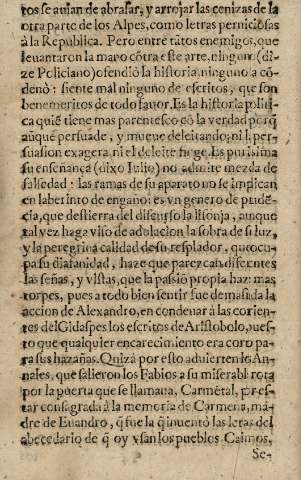 tos se auian de abrasar, y arrojar las cenizas de la
otra parte de los Alpes, como letras perniciosas
à la Republica. Pero entre tãtos enemigos, que
leuantaron la maro cõtra este arte, ninguno (di-
ze Policiano) ofendió la historia, ninguno la cõ-
denò: siente mal ninguño de escritos, que son
benemeritos de todo fauor. Es la historia politi-
ca quiẽ tiene mas parentesco cõ la verdad porq̃
aũque persuade, y mueue deleitando; ni la per-
suasion exagera, ni el deleite finge. Es purissima
su enseñança (dixo Iulio) no admite mezcla de
falsedad: las ramas de su aparato no se implican
en laberinto de engaño: es vn genero de prudẽ-
cia, que destierra del discurso la lisonja, aunque
tal vez haga viso de adulacion la sobra de su luz,
y la peregrina calidad de su resplãdor,
pa su diafanidad, haze que parezcan diferentes
las señas, y vistas, que la passió propia haz: mas
torpes, pues a todo bien sentir fue demasiada la
accion de Alexandro, en condenar à las corien-
tes del Gidaspes los escritos de Aristobolo, pues-
to que qualquier encarecimiento era coro pa-
ra sus hazañas. Quizà por esto aduierten lo An-
nales, què salieron los Fabios a su miserabl rota
por la puerta que se llamaua, Carmẽtal, pr est-
tar consagrada à la memoria de Carmenta, ma-
dre de Euandro, q̃ fue la q̃ inuentò las letras del
abecedario de q̃ oy vsan los pueblos Latinos.
Se-